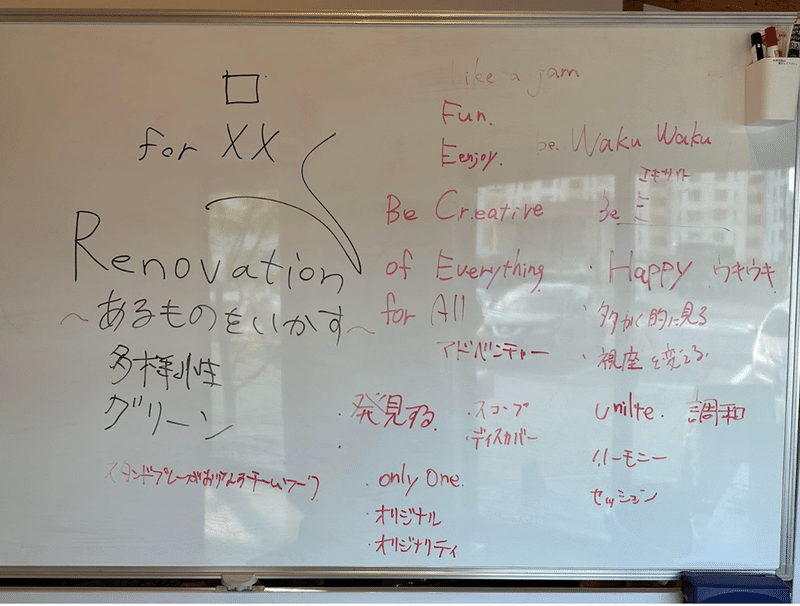 for XX
Renovation
〜あるものをいかす〜
多様性
グリーン
like a jam
Fun.
Eenjoy.
be. Waku Waku
エキサイト
Be Creative
be
of Everything
・Happy ウキウキ
for All
・多かく的に見る
アドベンチャー
・視座を変える.
・発見する.
・スコープ
・ディスカバー
unite. 調和
ハーモニー
セッション
・only One.
・オリジナル
・オリジナリティ